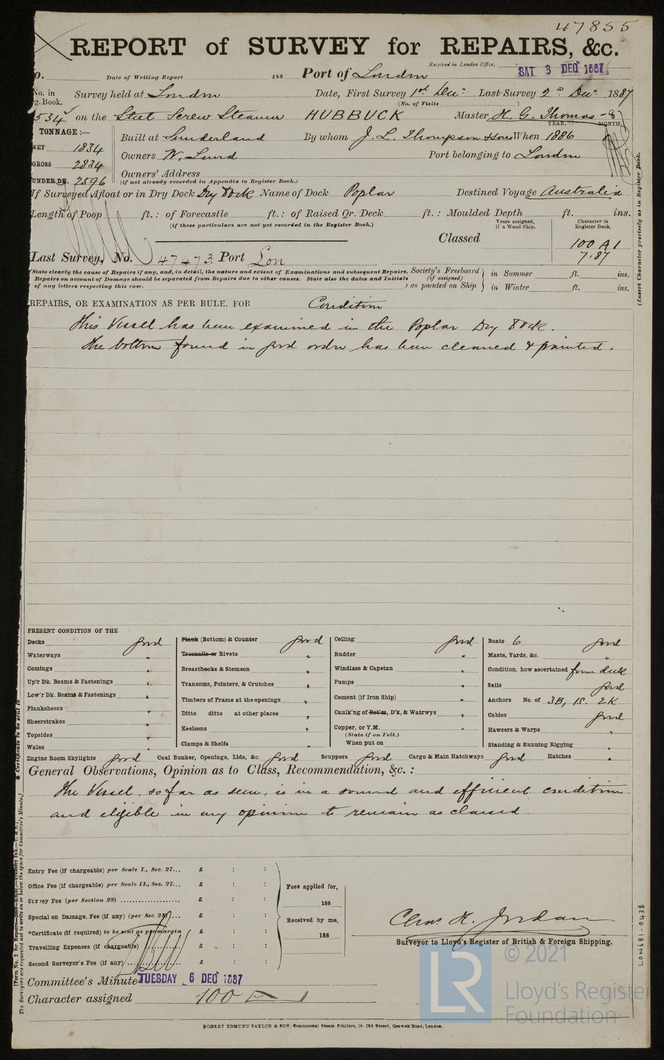 47855
REPORT of SURVEY for REPAIRS, &c.
Received in London Office,
SAT 3 DEC 1887
Date of Writing Report 188 Port of London
No. in Survey held at London Date, First Survey 1st Dec Last Survey 2nd Dec 1887
g. Book. (No. of Visits
534 on the Steel Screw Steamer HUBBUCK Master H. G. Thomas
TONNAGE:— YEAR. MONTH.
NET 1834 Built at Sunderland By whom J. L. Thompson & Sons When 1886
GROSS 2834 Owners W. Lund Port belonging to London
UNDER DK. 2596 Owners' Address
(if not already recorded in Appendix to Register Book.)
If Surveyed Afloat or in Dry Dock Dry Dock Name of Dock Poplar Destined Voyage Australia
Length of Poop ft. : of Forecastle ft. : of Raised Qr. Deck ft. : Moulded Depth ft. ins.
(if these particulars are not yet recorded in the Register Book.)
Years assigned, if a Wood Ship. Character in Register Book.
Classed 100 A1
7.87
Last Survey, No. 47473 Port Lon
State clearly the cause of Repairs if any, and, in detail, the nature and extent of Examinations and subsequent Repairs.
Repairs on account of Damage should be separated from Repairs due to other causes. State also the dates and Initials
of any letters respecting this case.
Society's Freeboard (if assigned) as painted on Ship
in Summer ft. ins.
in Winter ft. ins.
REPAIRS, OR EXAMINATION AS PER RULE, FOR Condition
This Vessel has been examined in the Poplar Dry Dock.
The bottom found in good order has been cleaned & painted.
PRESENT CONDITION OF THE
Decks good
Waterways "
Comings "
Up'r Dk. Beams & Fastenings "
Low'r Dk. Beams & Fastenings "
Planksheers "
Sheerstrakes "
Topsides "
Wales "
Plank (Bottom) & Counter good
Treenails or Rivets "
Breasthooks & Stemson "
Transoms, Pointers, & Crutches "
Timbers of Frame at the openings "
Ditto ditto at other places "
Keelsons "
Clamps & Shelfs "
Ceiling good
Rudder "
Windlass & Capstan "
Pumps "
Cement (if Iron Ship) "
Caulk'ng of Bottm, D'k, & Watrwys "
Copper, or Y.M.
(State if on Felt.)
When put on
Boats 6 good
Masts, Yards, &c. "
Condition, how ascertained from deck
Sails good
Anchors No. of 3B, 1S. 2K
Cables good
Hawsers & Warps "
Standing & Running Rigging "
Engine Room Skylights good Coal Bunker, Openings, Lids, &c. good Scuppers good Cargo & Main Hatchways good Hatches "
General Observations, Opinion as to Class, Recommendation, &c. :
The Vessel, so far as seen, is in a sound and efficient condition
and eligible in my opinion to remain as classed
Entry Fee (if chargeable) per Scale I., Sec. 27... £ : :
Office Fee (if chargeable) per Scale II., Sec. 27... £ : :
Survey Fee (per Section 28) £ : :
Special on Damage, Fee (if any) (per Sec. 28) £ : :
*Certificate (if required) to be sent as per margin £ : :
Travelling Expenses (if chargeable) £ : :
Second Surveyor's Fee (if any) £ : :
Fees applied for,
188
Received by me,
188
Chas H. Jordan
Surveyor to Lloyd's Register of British & Foreign Shipping.
Committee's Minute TUESDAY 6 DEC 1887
Character assigned 100 A 1
ROBERT EDMUND TAYLOR & SON, Commercial Steam Printers, 19, Old Street, Goswell Road, London.
(Insert Character precisely as in Register Book.)
LON681-0438
© 2021
LR
Lloyd's Register
Foundation